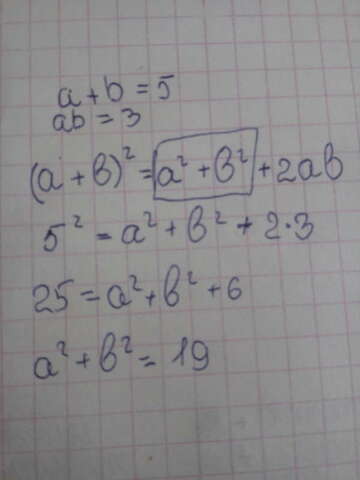 a + b = 5
ab = 3
(a + b)² = a² + b² + 2ab
5² = a² + b² + 2·3
25 = a² + b² + 6
a² + b² = 19